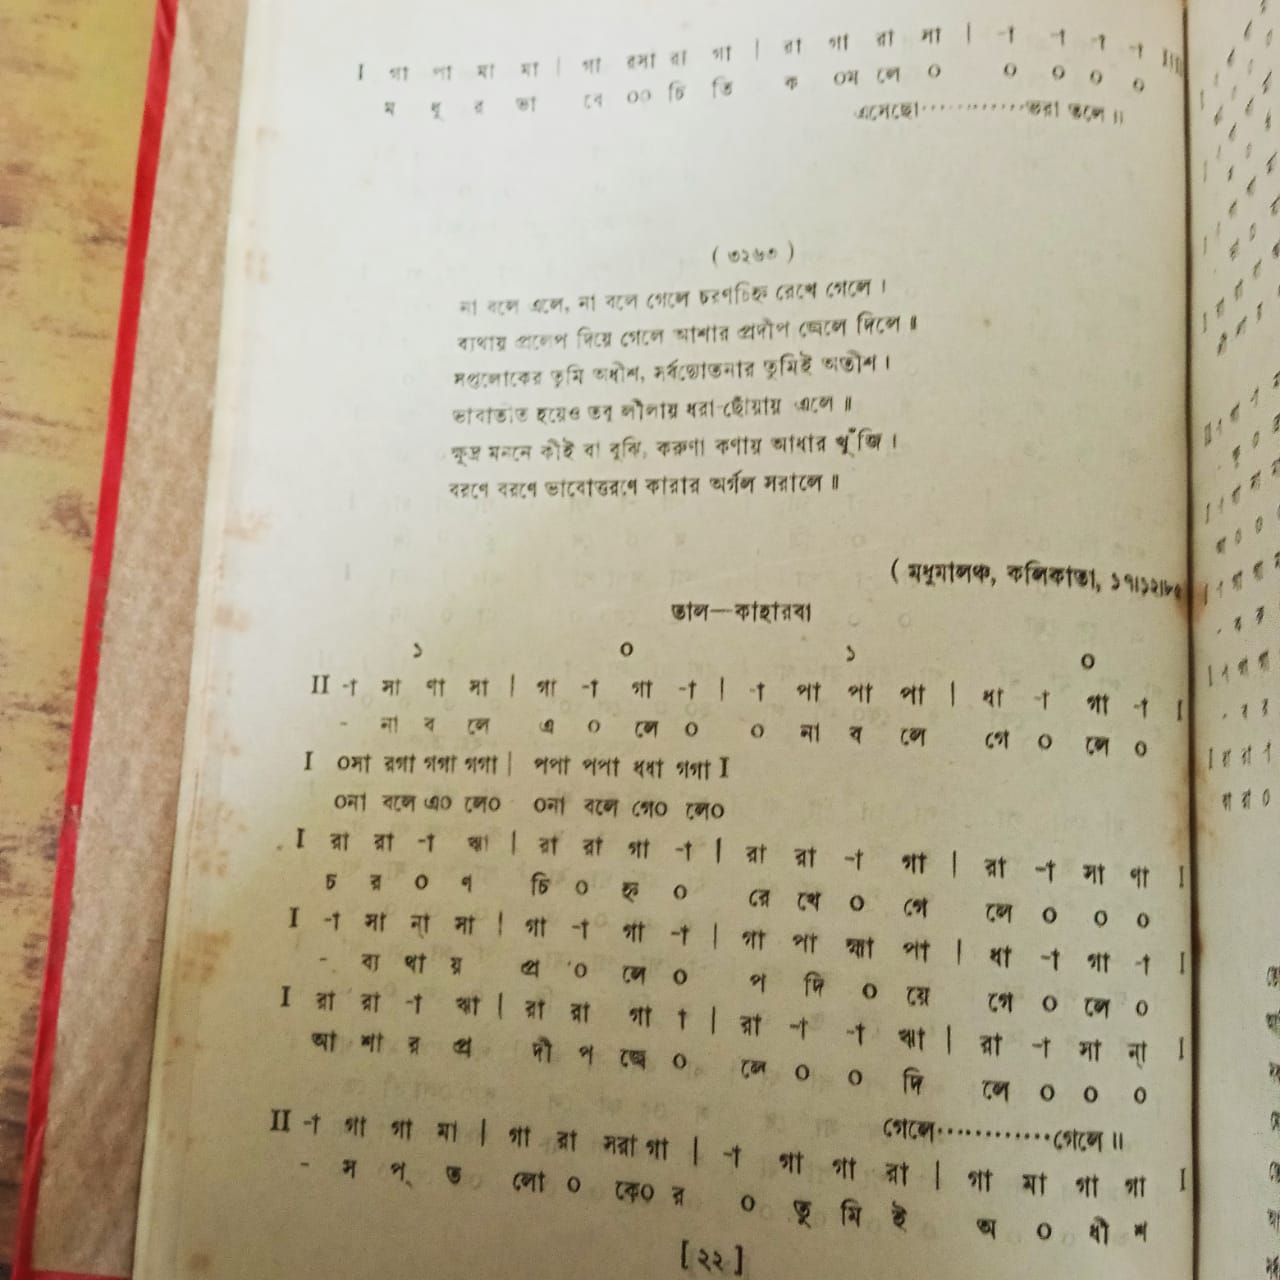 I গা পা মা মা | গা রমা রা গা | রা গা রা সা | -া -া -া -া III
ম ধু র ভা বে ০০ চি তি ক ০ম লে ০ ০ ০ ০ ০
এসেছো············ভরা তলে॥
( ৩২৬৩ )
না বলে এলে, না বলে গেলে চরণচিহ্ন রেখে গেলে ।
ব্যথায় প্রলেপ দিয়ে গেলে আশার প্রদীপ জ্বেলে দিলে ॥
সপ্তলোকের তুমি অধীশ, সর্বদ্যোতনার তুমিই অতীশ ।
ভাবাতীত হয়েও তবু লীলায় ধরা-ছোঁয়ায় এলে ॥
ক্ষুদ্র মননে কীই বা বুঝি, করুণা কণায় আধার খুঁজি ।
বরণে বরণে ভাবোত্তরণে কারার অর্গল সরালে ॥
( মধুমালঞ্চ, কলিকাতা, ১৭।১২।৮৫
তাল—কাহারবা
১ ০ ১ ০
II -া সা ণা সা | গা -া গা -া | -া পা পা পা | ধা -া গা -া I
- না ব লে এ ০ লে ০ ০ না ব লে গে ০ লে ০
I ০সা রগা গগা গগা | পপা পপা ধধা গগা I
০না বলে এ০ লে০ ০না বলে গে০ লে০
I রা রা -া ঋা | রা রা গা -া | রা রা -া গা | রা -া সা ণা I
চ র ০ ণ চি ০ হ্ন ০ রে খে ০ গে লে ০ ০ ০
I -া সা ন্া সা | গা -া গা -া | গা পা হ্মা পা | ধা -া গা -া I
- ব্য থা য় প্র ০ লে ০ প দি ০ য়ে গে ০ লে ০
I রা রা -া ঋা | রা রা গা া | রা -া -া ঋা | রা -া সা ন্া I
আ শা র প্র দী প জ্বে ০ লে ০ ০ দি লে ০ ০ ০
গেলে············গেলে॥
II -া গা গা মা | গা রা সরা গা | -া গা গা রা | গা মা গা গা I
- স প্ ত লো ০ কে০ র ০ তু মি ই অ ০ ধী শ
[ ২২ ]